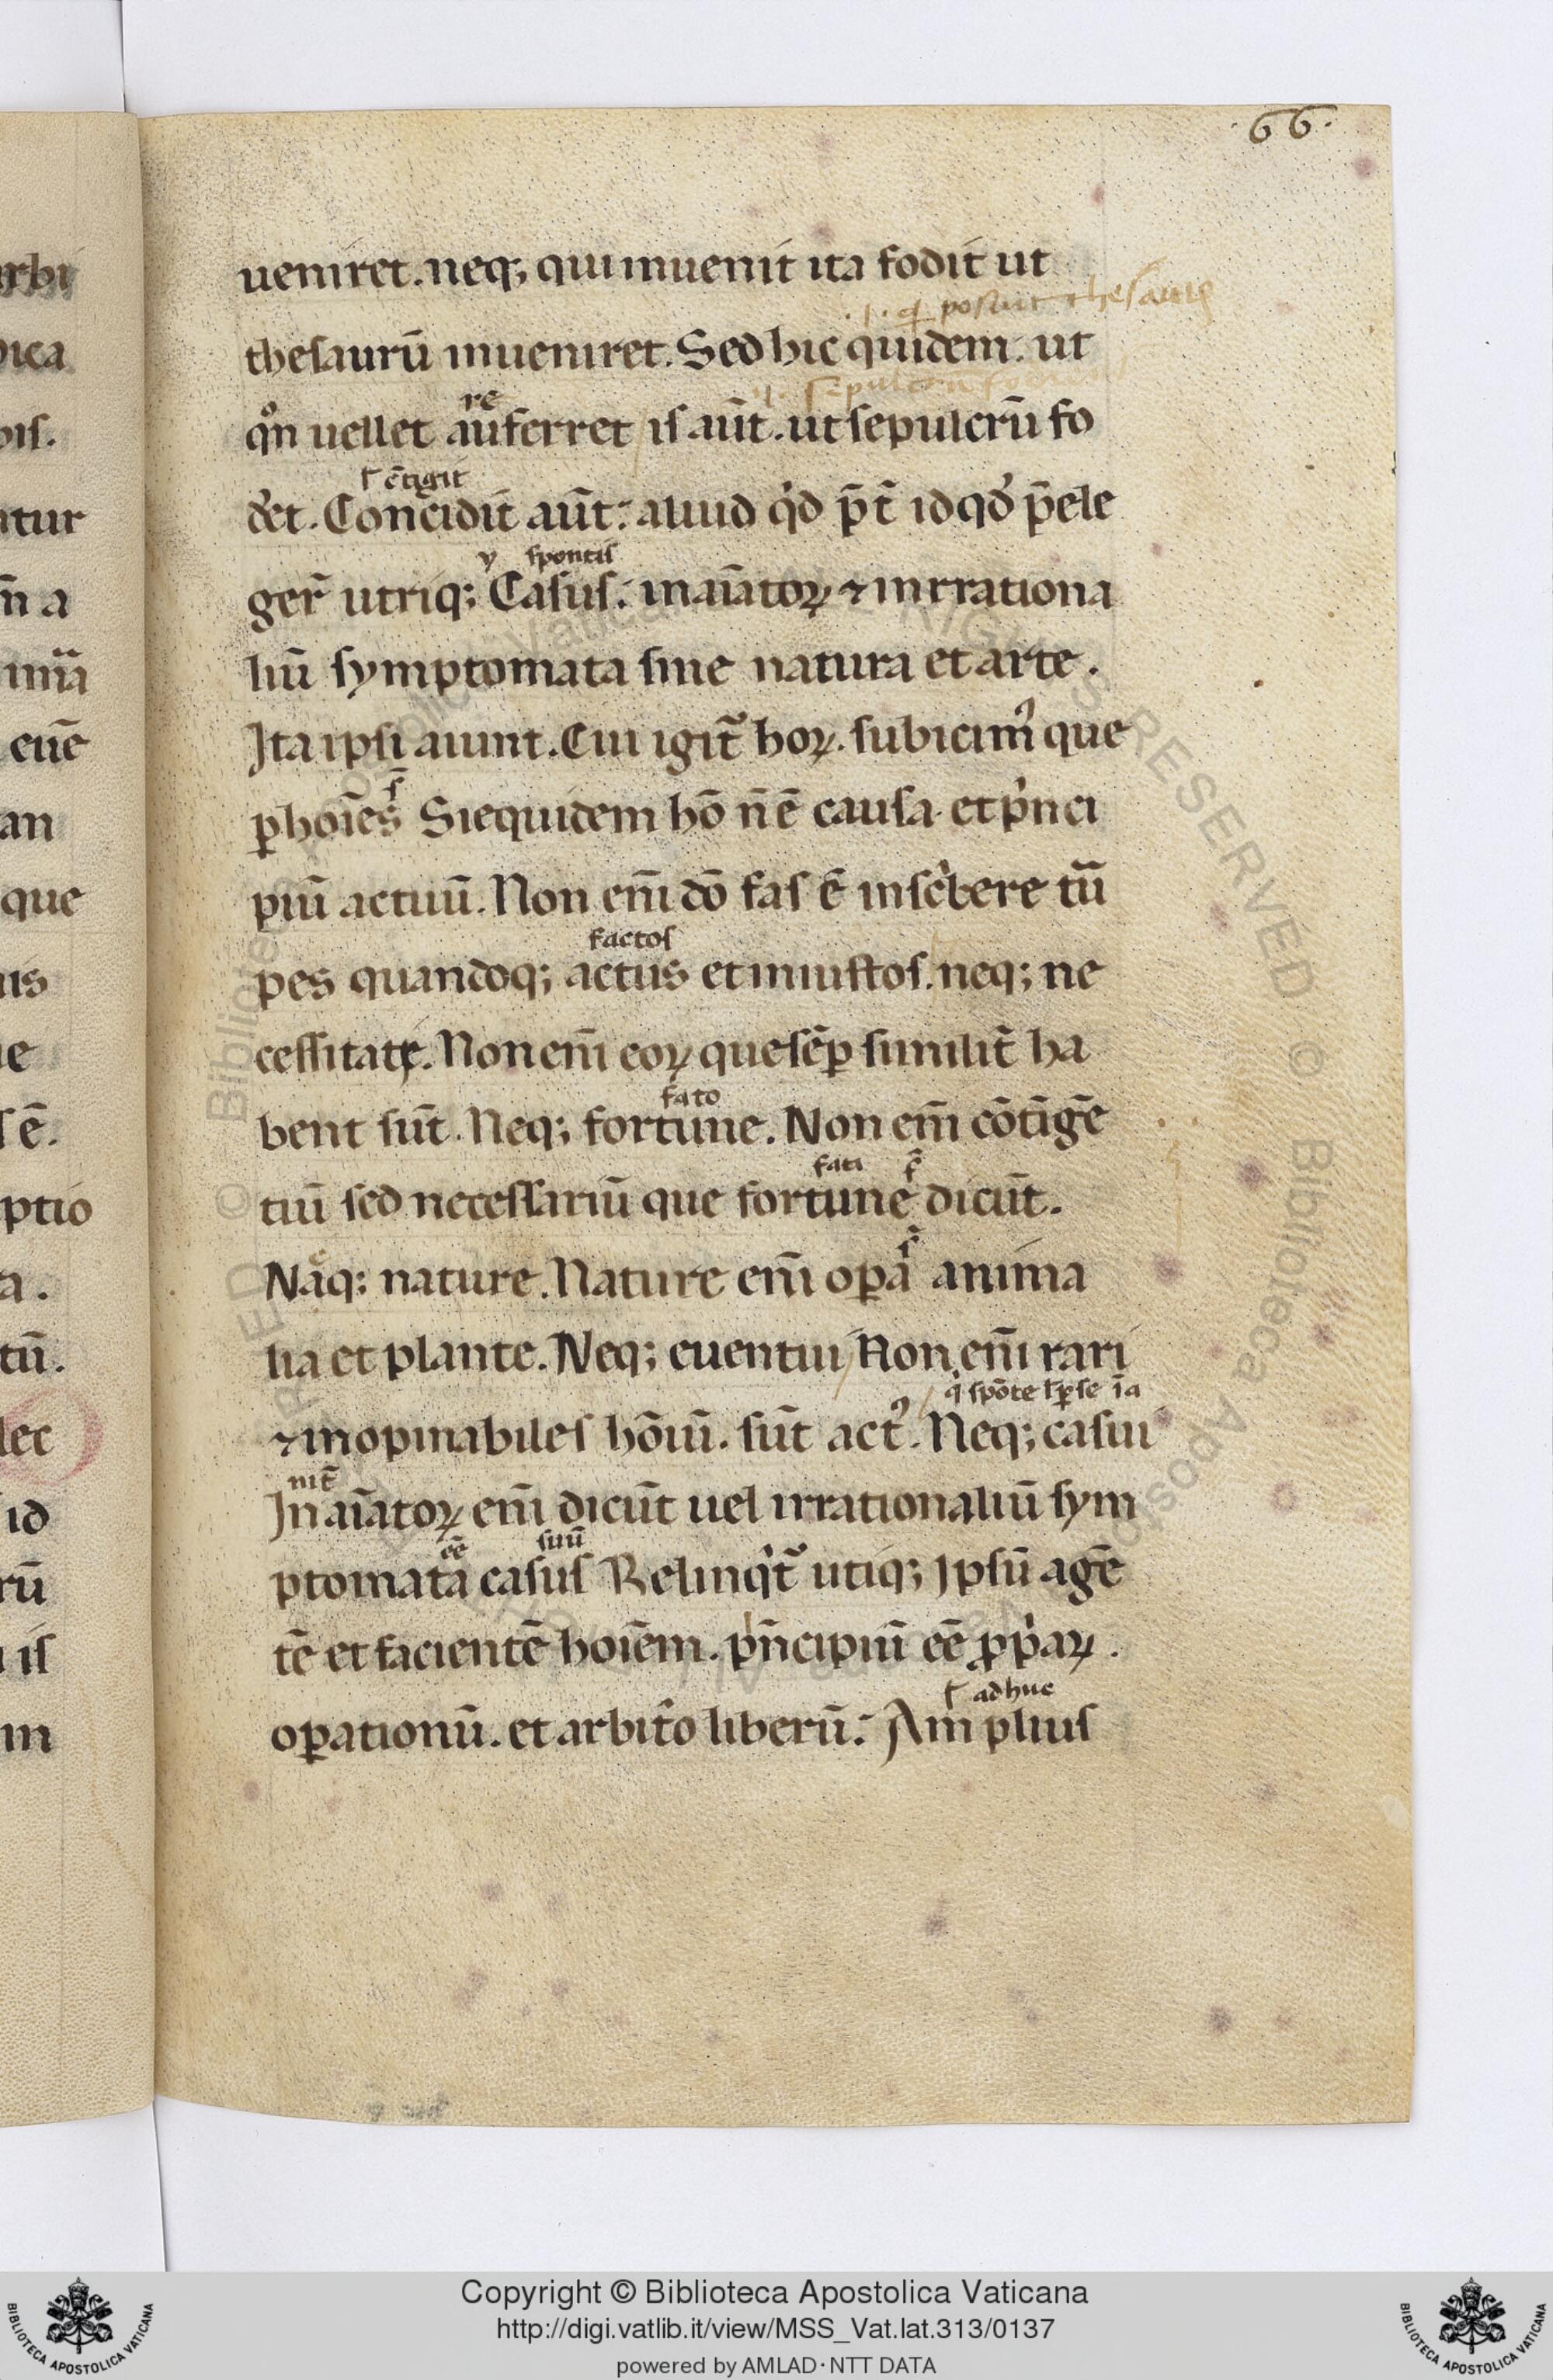 .66.
ueniret. neq; qui inuenit ita fodit ut
.i. q posuit thesaurū
thesaurū inueniret. Sed hic quidem. ut
.i. sepulcrū
re
qn̄ uellet auferret is aūt. ut sepulcrū fo
ł cōtigit
det. Concidit aūt: aliud qd p̄t id qd p̄ele
v spontis
gert utriq; Casus: inaīatoꝝ ⁊ inrrationa
liū symptomata sine natura et arte.
Ita ipsi aiunt. Cui igit̄ hoꝝ. subicim᷒ que
s̄
ꝑ hoīes Siequidem hō n̄ ē causa et p̍nci
piū actuū. Non eni̅ dō fas ē inscͥbere tū
factos
pes quandoq; actus et iniustos. neq; ne
cessitati. Non eni̅ eoꝝ que sēꝑ similit̄ ha
fato
bent sūt. Neq; fortune. Non eni̅ cōtigē
fati s̄
tiū sed necessariū que fortune dicūt.
e s̄
Naq; nature. Nature eni̅ oꝑa anima
lia et plante. Neq; euentui Non eni̅ rari
q̍ spōte ł ꝑ se īa
⁊ inopinabiles hōiū. sūt act᷒. Neq; casui
nīt
Inaīatoꝝ eni̅ dicūt uel irrationaliū sym
eē suū
ptomata casus Relinqͥt᷑ utiq; ipsū agē
tē et facientē hoīem. p̍ncipiū eē ꝓpͥaꝝ.
ł adhuc
oꝑationū. et arbitͥo liberū: Amplius
rbi
ica
is.
tur
n̄ a
euē
an
que
us
e
s ē.
ptio
a.
tū.
lec
id
rū
is
in
© Biblioteca Apostolica Vaticana ALL RIGHTS RESERVED
Copyright © Biblioteca Apostolica Vaticana
http://digi.vatlib.it/view/MSS_Vat.lat.313/0137
powered by AMLAD·NTT DATA
BIBLIOTECA APOSTOLICA VATICANA
BIBLIOTECA APOSTOLICA VATICANA